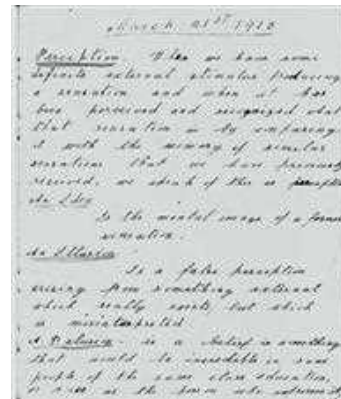 March 21st 1918
Perception When we have some
definite external stimulus producing
a sensation and when it has
been perceived and recognized what
that sensation is by comparing
it with the memory of similar
sensations that we have previously
received, we speak of this as
An Idea
Is the mental image of a former
sensation.
An Illusion
Is a false perception
arising from something external
which really exists, but which
is misinterpreted
A Delusion is a belief in something
that would be incredible in
people of the same class education,
or